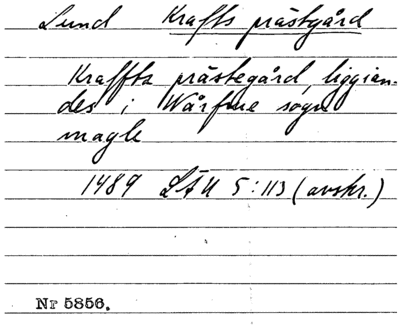 Lund Krafts prästgård
Kraffta prästegård, liggian-
des i Wårfrue sogn
magle
1489 LÄU 5:113 (avskr.)
Nr 5856.